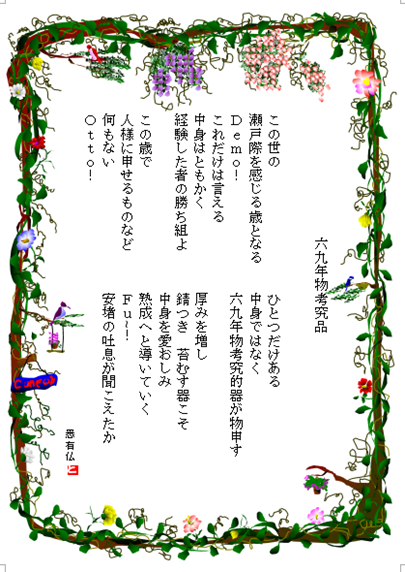 六九年物考究品
この世の
瀬戸際を感じる歳となる
Demo!
これだけは言える
中身はともかく
経験した者の勝ち組よ
この歳で
人様に申せるものなど
何もない
Otto!
ひとつだけある
中身ではなく
六九年物考究的器が物申す
厚みを増し
錆つき 苔むす器こそ
中身を愛おしみ
熟成へと導いていく
Fu~!
安堵の吐息が聞こえたか
愚有仏